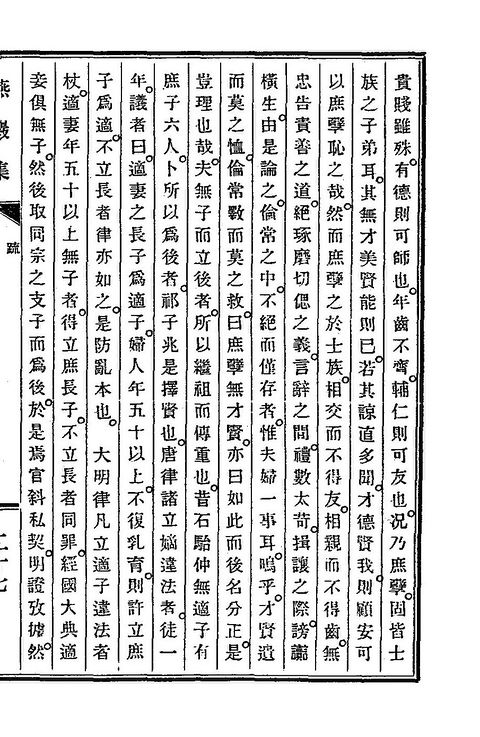 貴賤雖殊有德則可師也年齒不齊輔仁則可友也況乃庶孼固皆士
族之子弟耳其無才美賢能則已若其諒直多聞才德賢我則顧安可
以庶孼恥之哉然而庶孼之於士族相交而不得友相親而不得齒無
忠告責善之道絕琢磨切偲之義言辭之間禮數太苛揖讓之際謗讟
橫生由是論之倫常之中不絕而僅存者惟夫婦一事耳嗚乎才賢遺
而莫之恤倫常斁而莫之救曰庶孼無才賢亦曰如此而後名分正是
豈理也哉夫無子而立後者所以繼祖而傳重也昔石駘仲無適子有
庶子六人卜所以爲後者祁子兆是擇賢也唐律諸立嫡違法者徒一
年議者曰適妻之長子爲適子婦人年五十以上不復乳育則許立庶
子爲適不立長者律亦如之是防亂本也 大明律凡立適子違法者
杖適妻年五十以上無子者得立庶長子不立長者同罪經國大典適
妾俱無子然後取同宗之支子而爲後於是焉官斜私契明證攷據然
燕巖集
疏
二十七